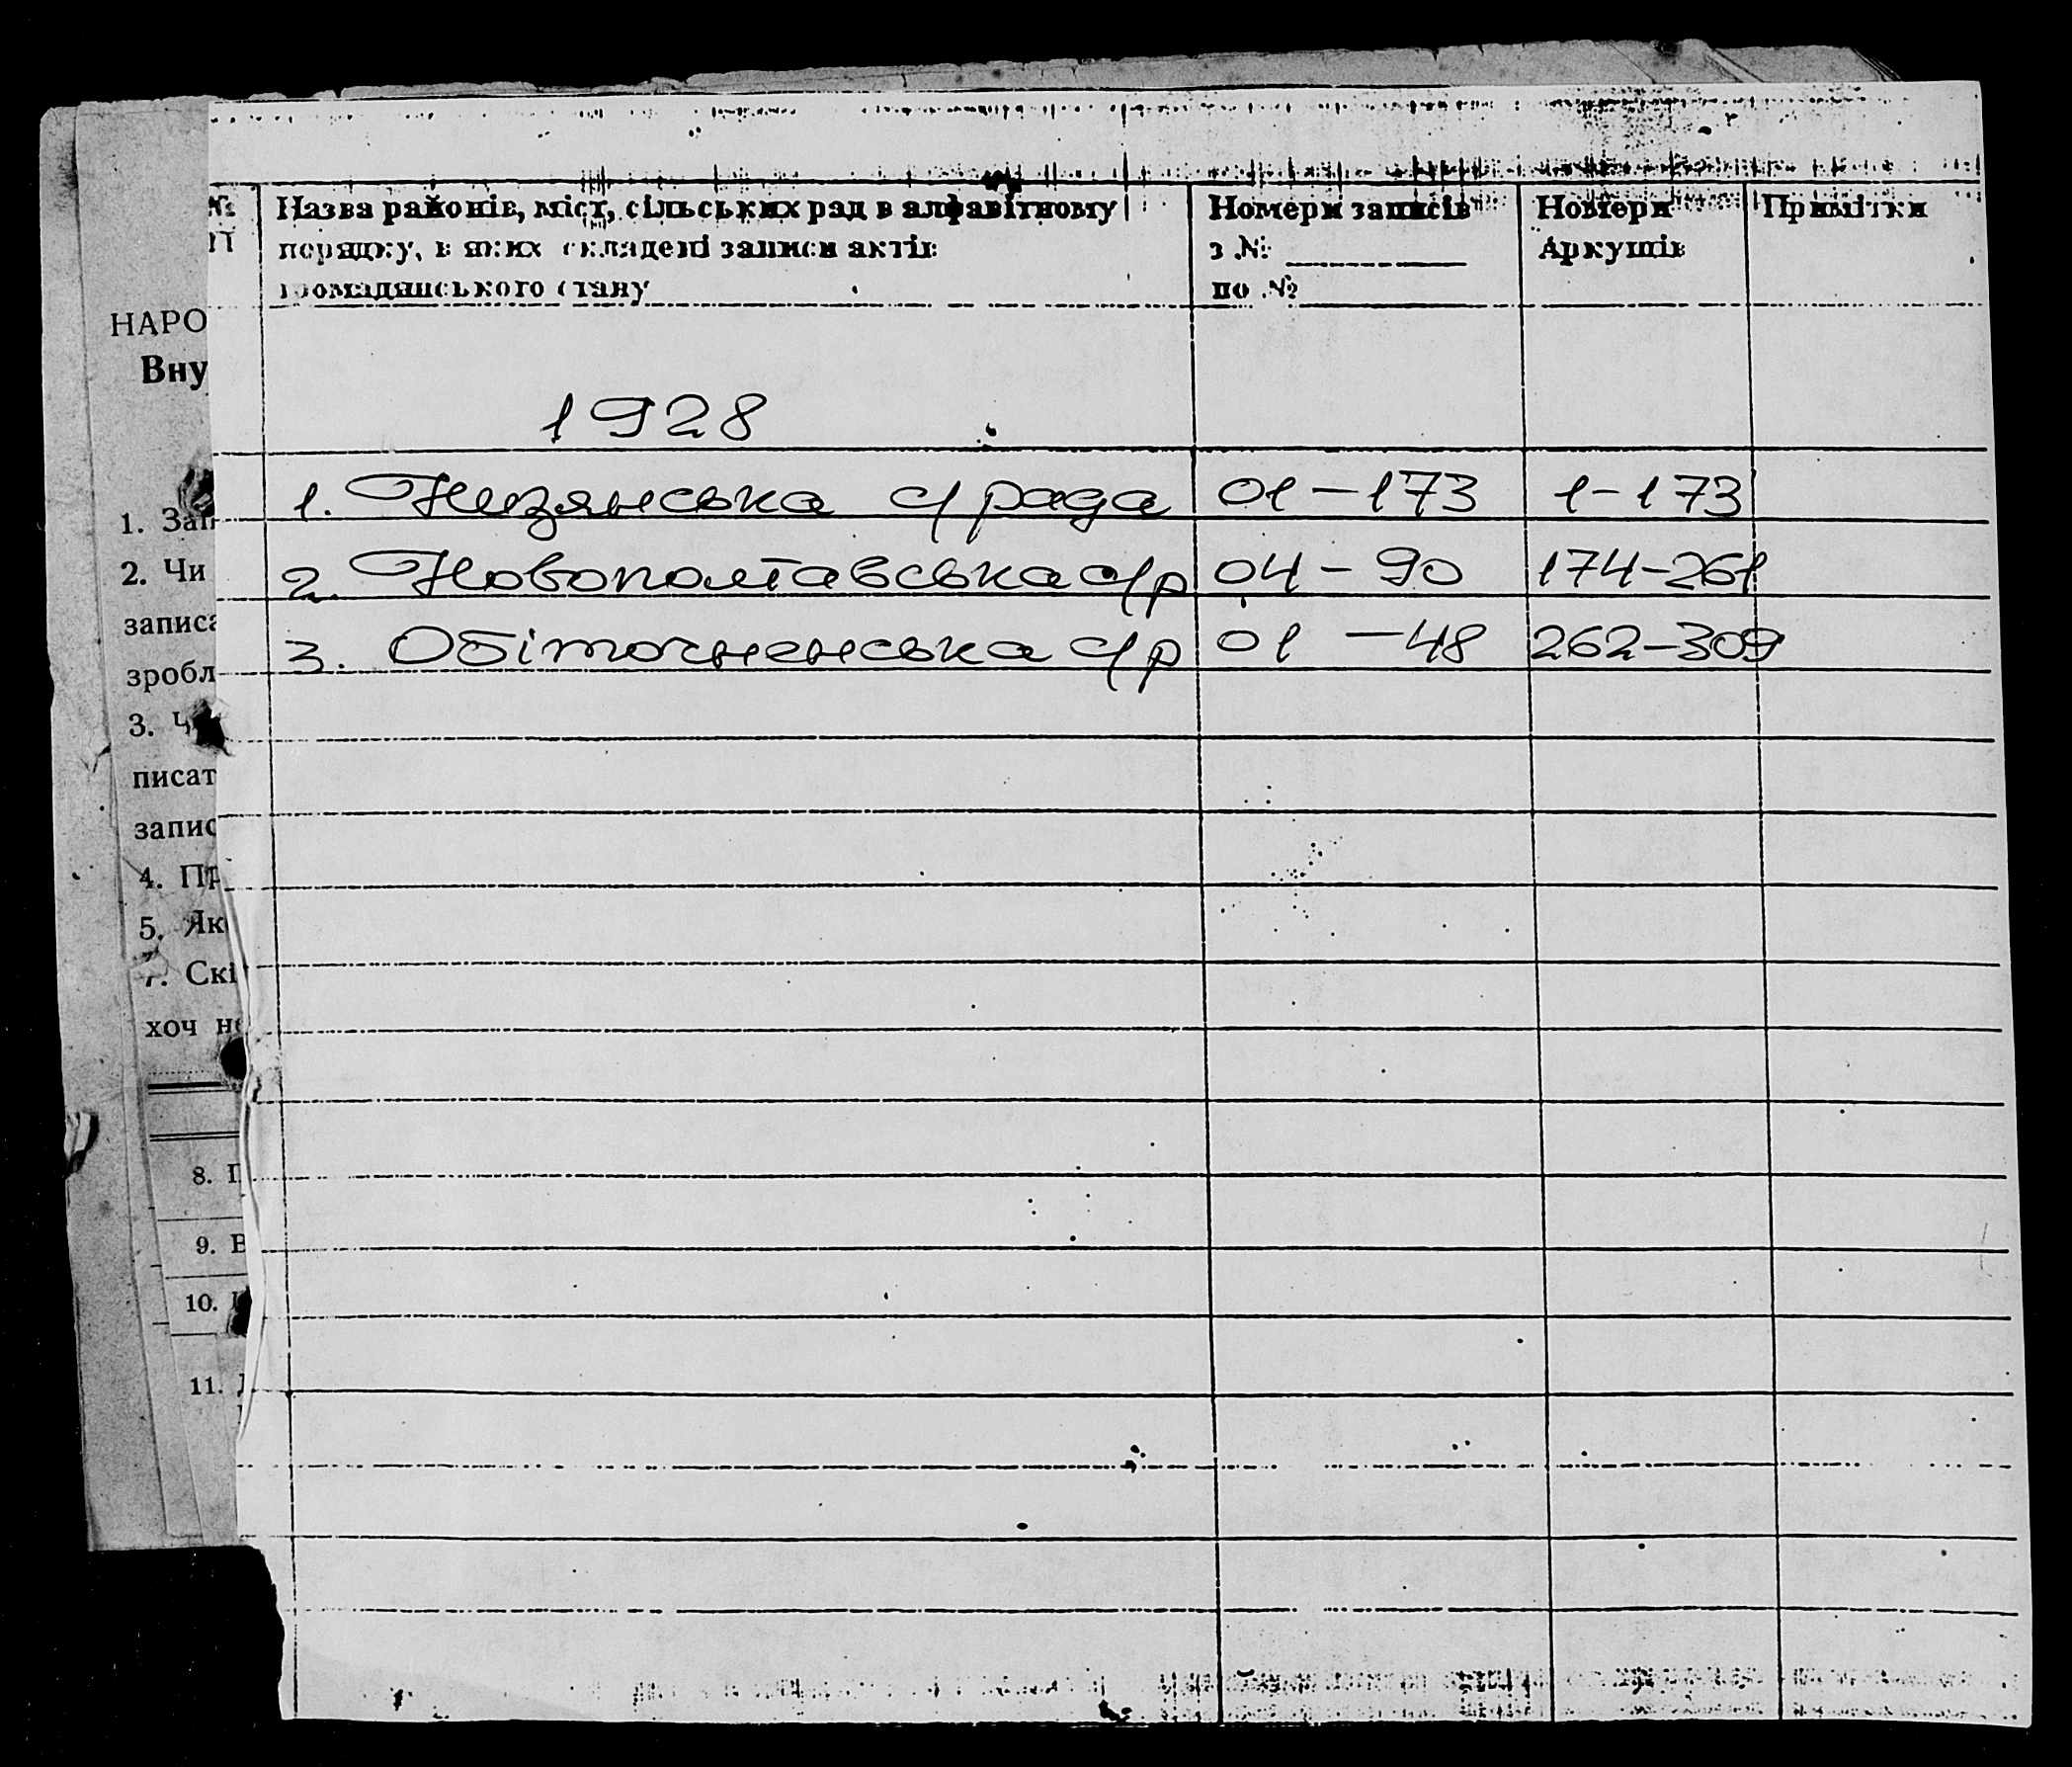 № Назва районів, міст, сільських рад в алфавітному Номери записів Номери Примітки
порядку, в яких складені записи актів з № Аркушів
громадянського стану по №
НАРО
Вну
1928
1. Низянська с/рада 01-173 1-173
2. Новополтавська с/р 04-90 174-261
3. Обіточненська с/р 01-48 262-309
1. Зап
2. Чи
записа
зробл
3.
писат
запис
4. Пр
5. Як
7. Скі
хоч не
8. П
9. В
10.
11.